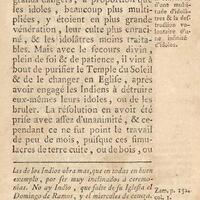 grands dangers, à proportion que
les idoles, beaucoup plus multi-
pliées, y étoient en plus grande
vénération, leur culte plus enraci-
né, & les idolâtres moins traita-
bles. Mais avec le secours divin,
plein de foi & de patience, il vint à
bout de purifier le Temple du Soleil
& de le changer en Eglise, après
avoir engagé les Indiens à détruire
eux-mêmes leurs idoles, ou de les
bruler. La résolution en avoit été
prise avec assez d'unanimité, & ce-
pendant ce ne fut point le travail
de peu de mois, puisque ces simu-
lacres de terre cuite, ou de bois, ou
d'ont multi-
tude d'idoles
& la des-
truction vo-
lontaire d'u-
ne infinité
d'idoles.
las de los Indios obra mas, que en todas en buen
exemplo, por ser muy inclinados à ceremo-
nias. No ay Indio, que falte de su Iglesia el
Domingo de Ramos, y el miercoles de ceniza.
Zam. p. 152.
col. 1.